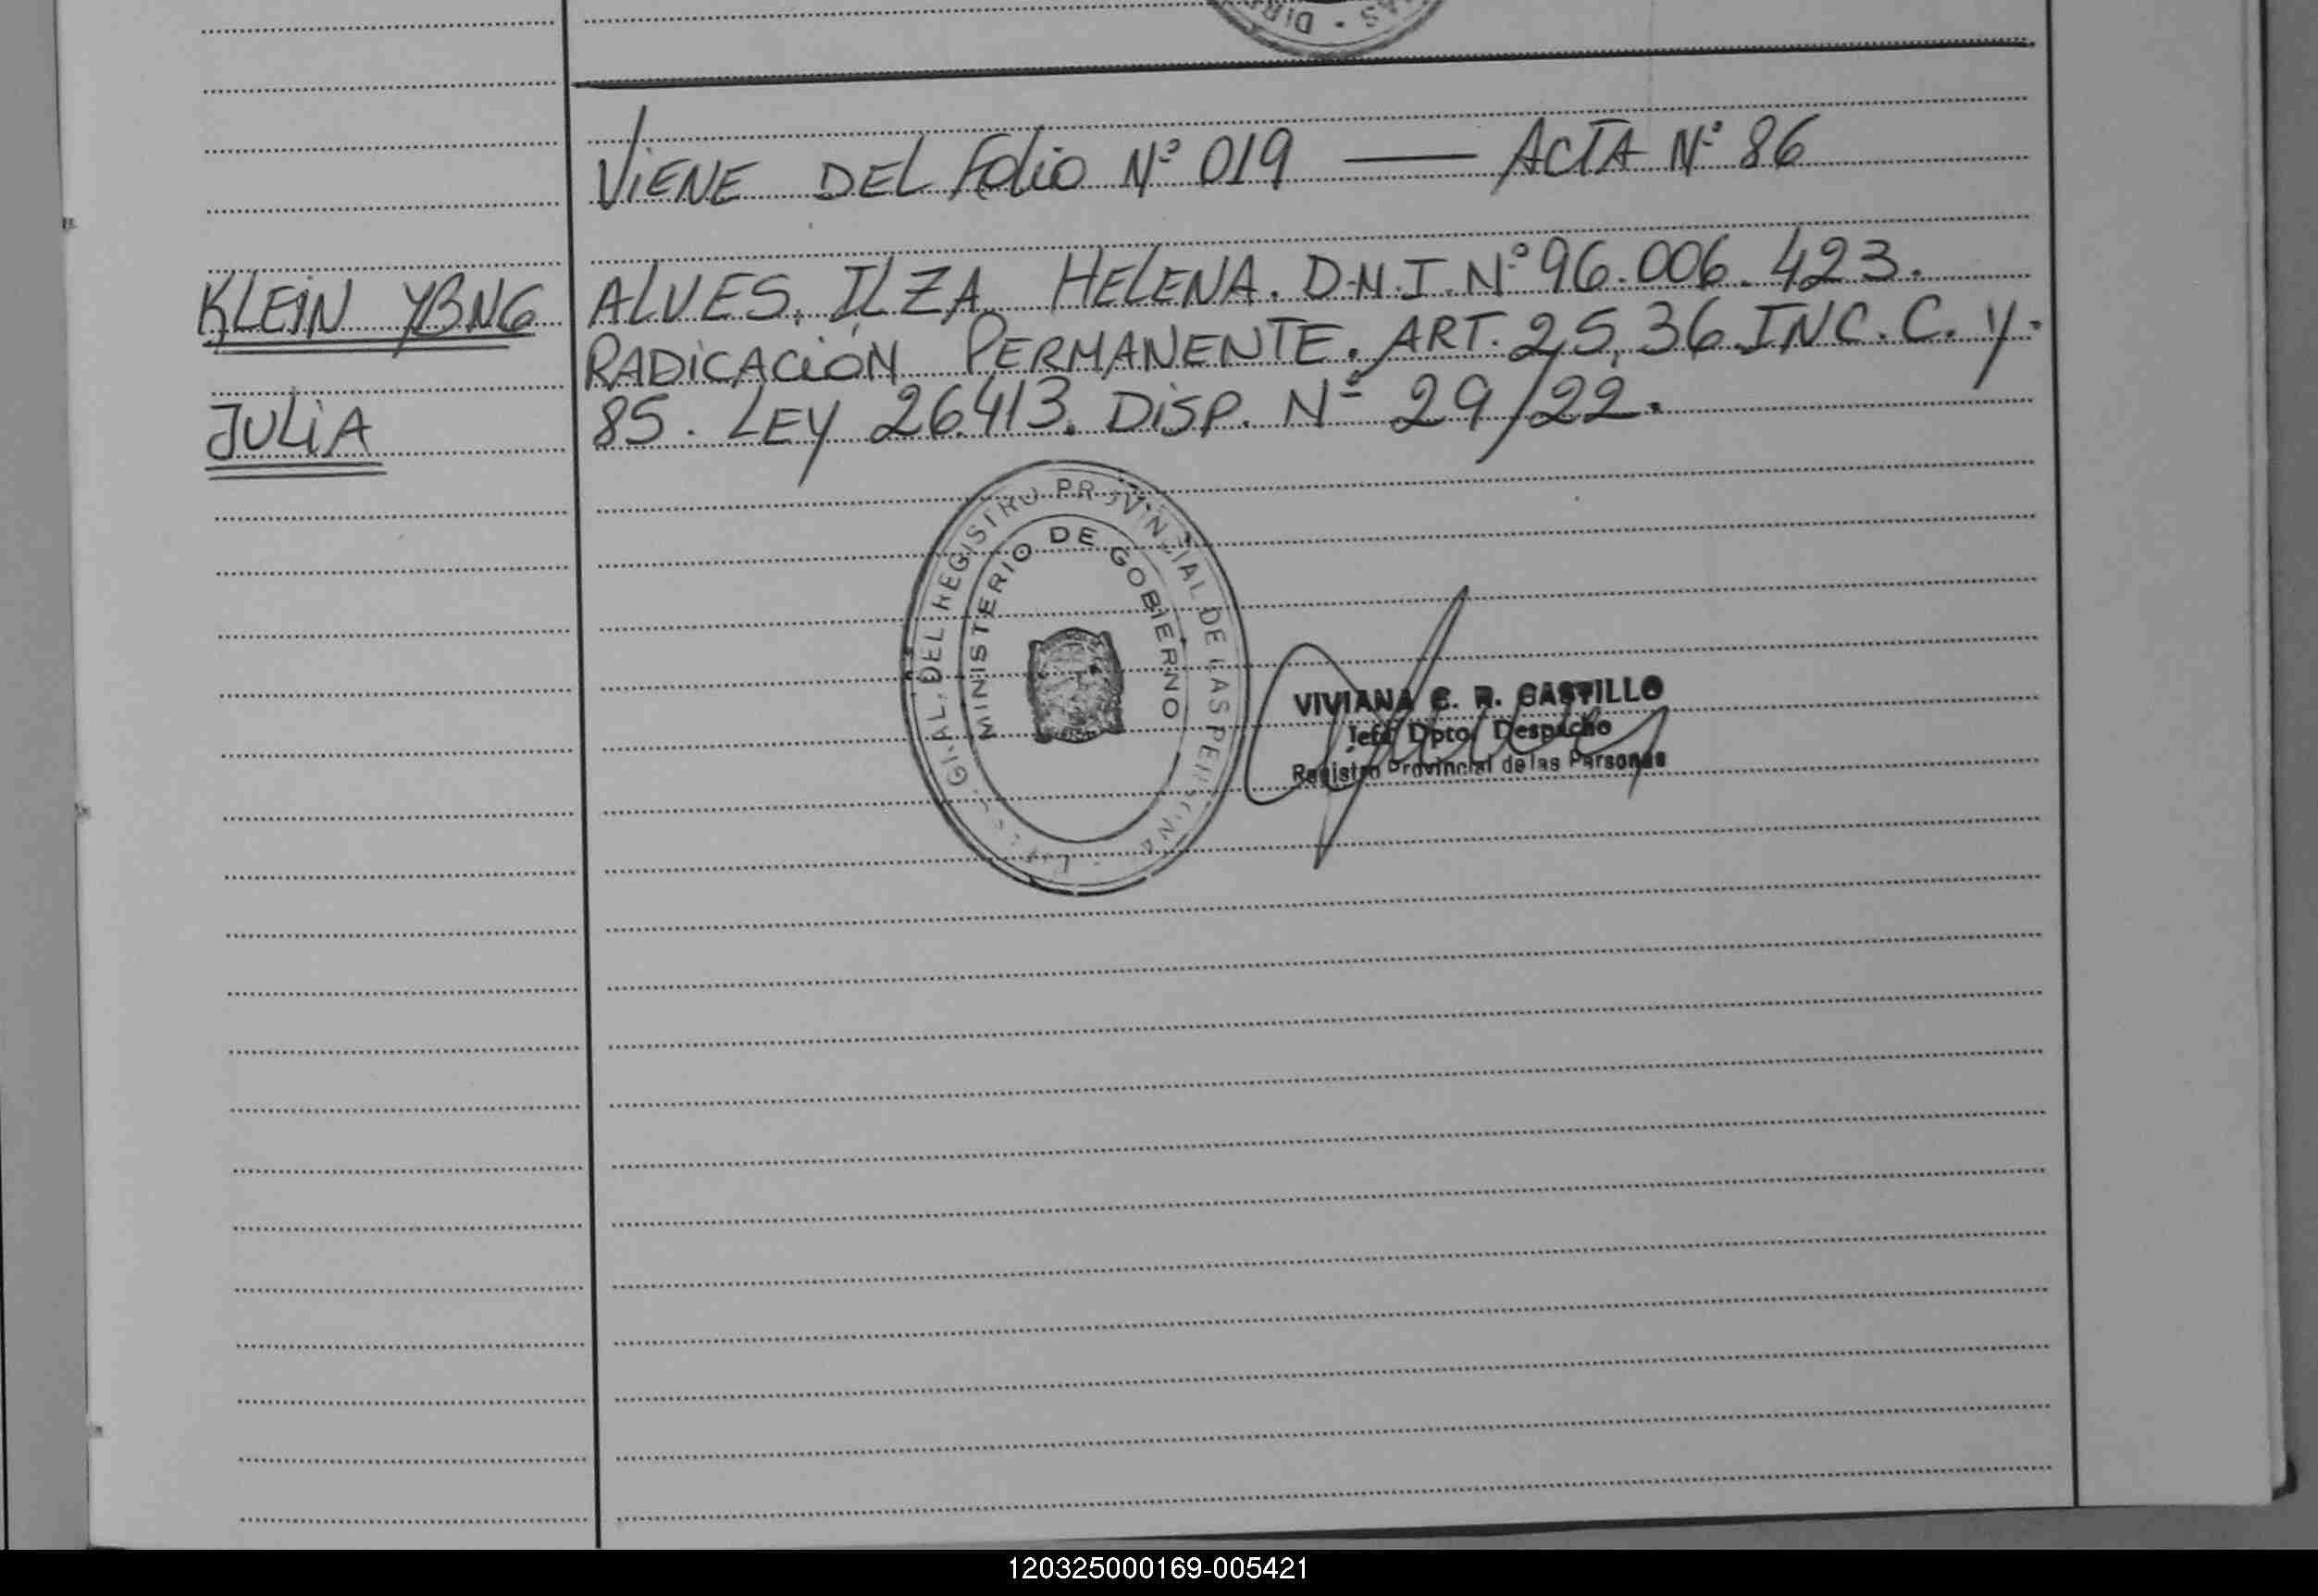 DIR
AS -
VIENE DEL Folio Nº 019 —— ACTA Nº 86
KLEIN YBNG
JULIA
ALVES, ILZA HELENA. D.N.I. Nº 96.006.423.
RADICACIÓN PERMANENTE. ART. 25, 36 INC. C. Y.
85. LEY 26.413. DISP. Nº 29/22.
GRAL. DEL REGISTRO PROVINCIAL DE LAS PERSONAS
MINISTERIO DE GOBIERNO
VIVIANA C. R. CASTILLO
Jefa Dpto. Despacho
Registro Provincial de las Personas
120325000169-005421